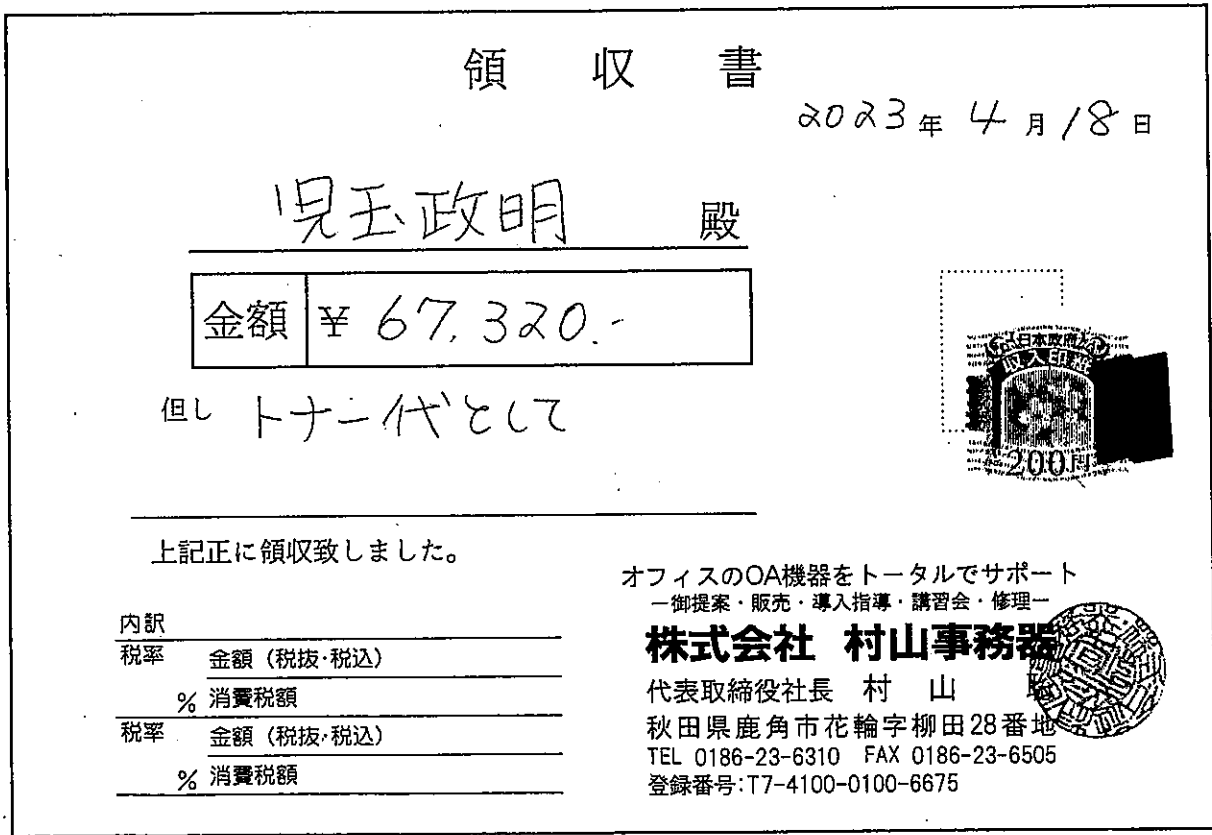 領 収 書
2023年 4月18日
児玉政明 殿
金額 ¥ 67,320.-
但し トナー代として
日本政府
収入印紙
200円
上記正に領収致しました。
内訳
税率 金額(税抜・税込)
% 消費税額
税率 金額(税抜・税込)
% 消費税額
オフィスのOA機器をトータルでサポート
ー御提案・販売・導入指導・講習会・修理ー
株式会社 村山事務器
代表取締役社長 村 山
秋田県鹿角市花輪字柳田28番地
TEL 0186-23-6310 FAX 0186-23-6505
登録番号:T7-4100-0100-6675